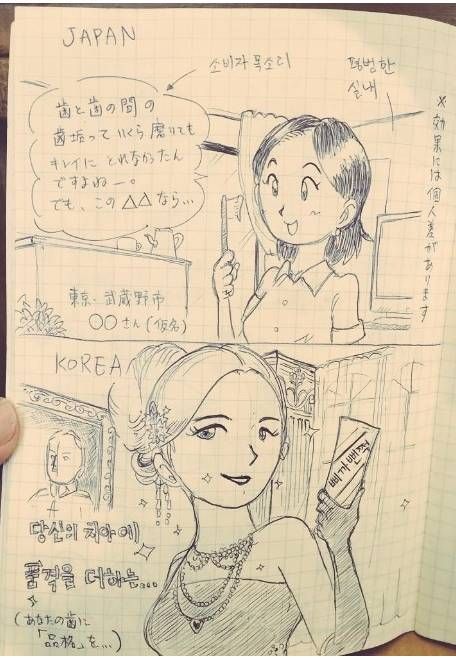 JAPAN
소비자 목소리
평범한
실내
歯と歯の間の
歯垢っていくら磨いても
キレイに とれなかったん
ですよねー。
でも、この △△なら…
※効果には個人差があります
東京・武蔵野市
〇〇さん(仮名)
KOREA
당신의 치아에
품격을 더하는...
(あなたの歯に
「品格」を…)
삐까뻔쩍